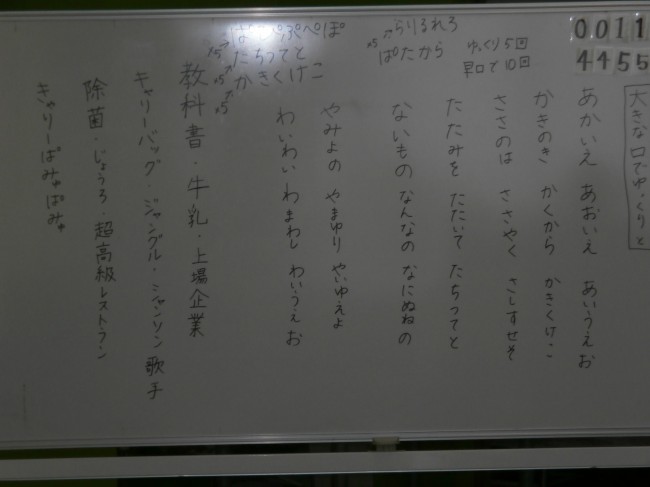 0011
4455
大きな口でゆっくりと
あかいえ あおいえ あいうえお
かきのき かくから かきくけこ
ささのは ささやく さしすせそ
たたみを たたいて たちつてと
ないもの なんなの なにぬねの
やみよの やまゆり やいゆえよ
わいわい わまわし わいうえお
らりるれろ
ぱたから
ゆっくり5回
早口で10回
ぱぴぷぺぽ
たちつてと
かきくけこ
x5
x5
x5
x5
教科書・牛乳・上場企業
キャリーバッグ・ジャングル・シャンソン歌手
除菌・じょうろ・超高級レストラン
きゃりーぱみゅぱみゅ